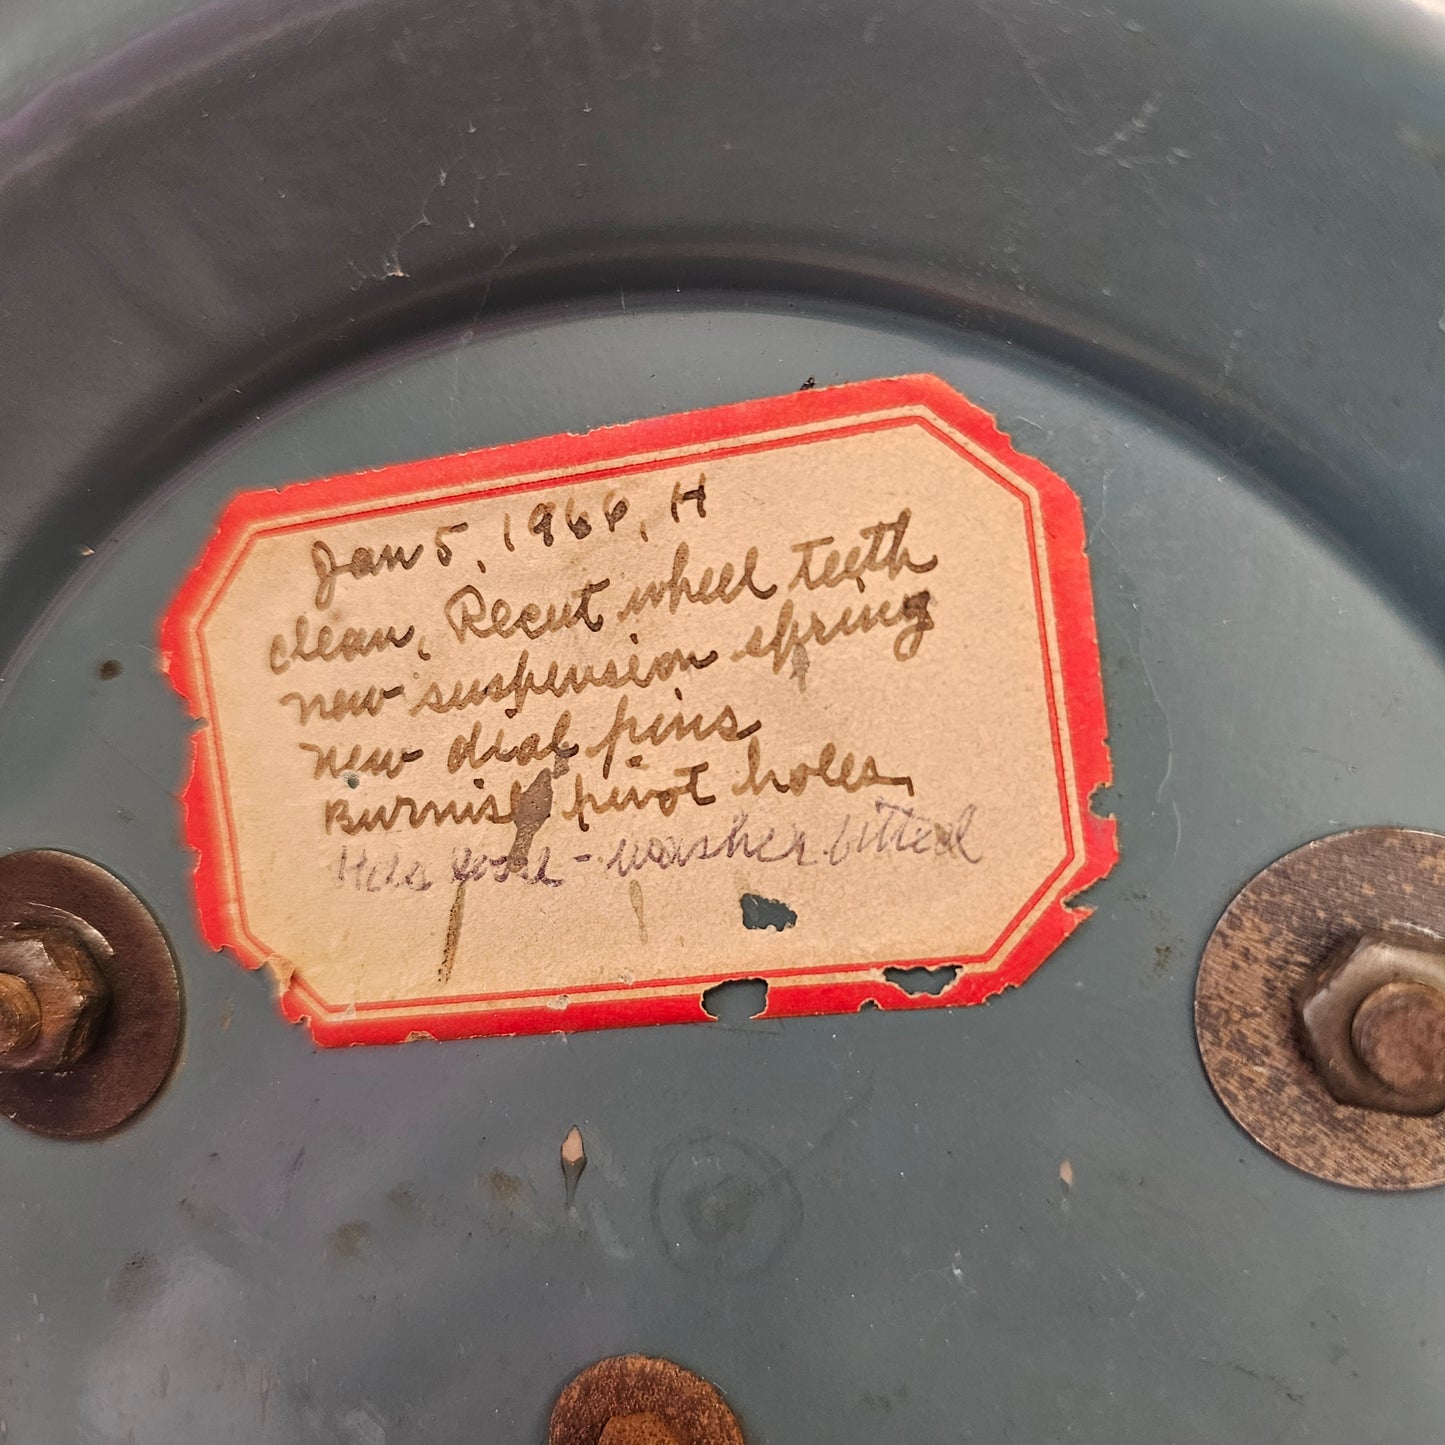 Jan 5, 1966, H
clean, Recut wheel teeth
new suspension spring
new dial pins
Burnish pivot holes,
loose - washer fitted